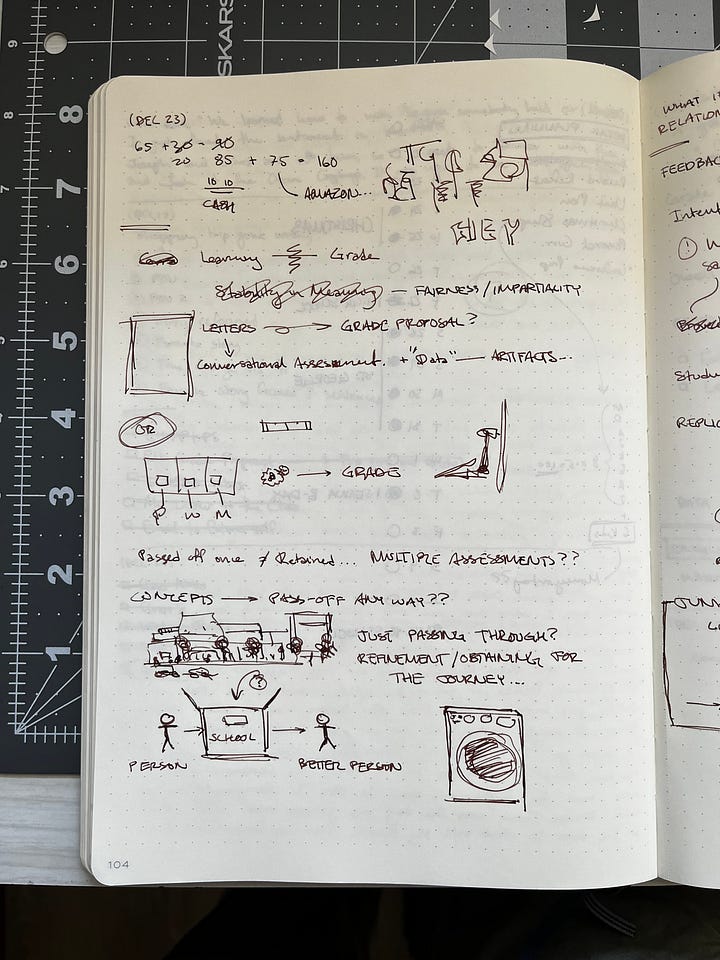 SKARS
9
8
8
7
7
6
6
5
5
4
4
3
3
2
2
1
1
(DEC 23)
65 + 30 - 90
20 85 + 75 = 160
10 10
CASH
AMAZON...
HEY
Learning Grade
Stability in Meaning — FAIRNESS/IMPARTIALITY
LETTERS → GRADE PROPOSAL?
Conversational Assessment. + "Data" — ARTIFACTS...
OR
→ GRADE
P W M
Passed off once ≠ Retained... MULTIPLE ASSESSMENTS??
CONCEPTS → PASS-OFF ANY WAY??
JUST PASSING THROUGH?
REFINEMENT/OBTAINING FOR
THE JOURNEY...
?
SCHOOL
PERSON BETTER PERSON
104
WHAT
RELATION
FEEDBAC
Intent
!
Stude
REPLIC